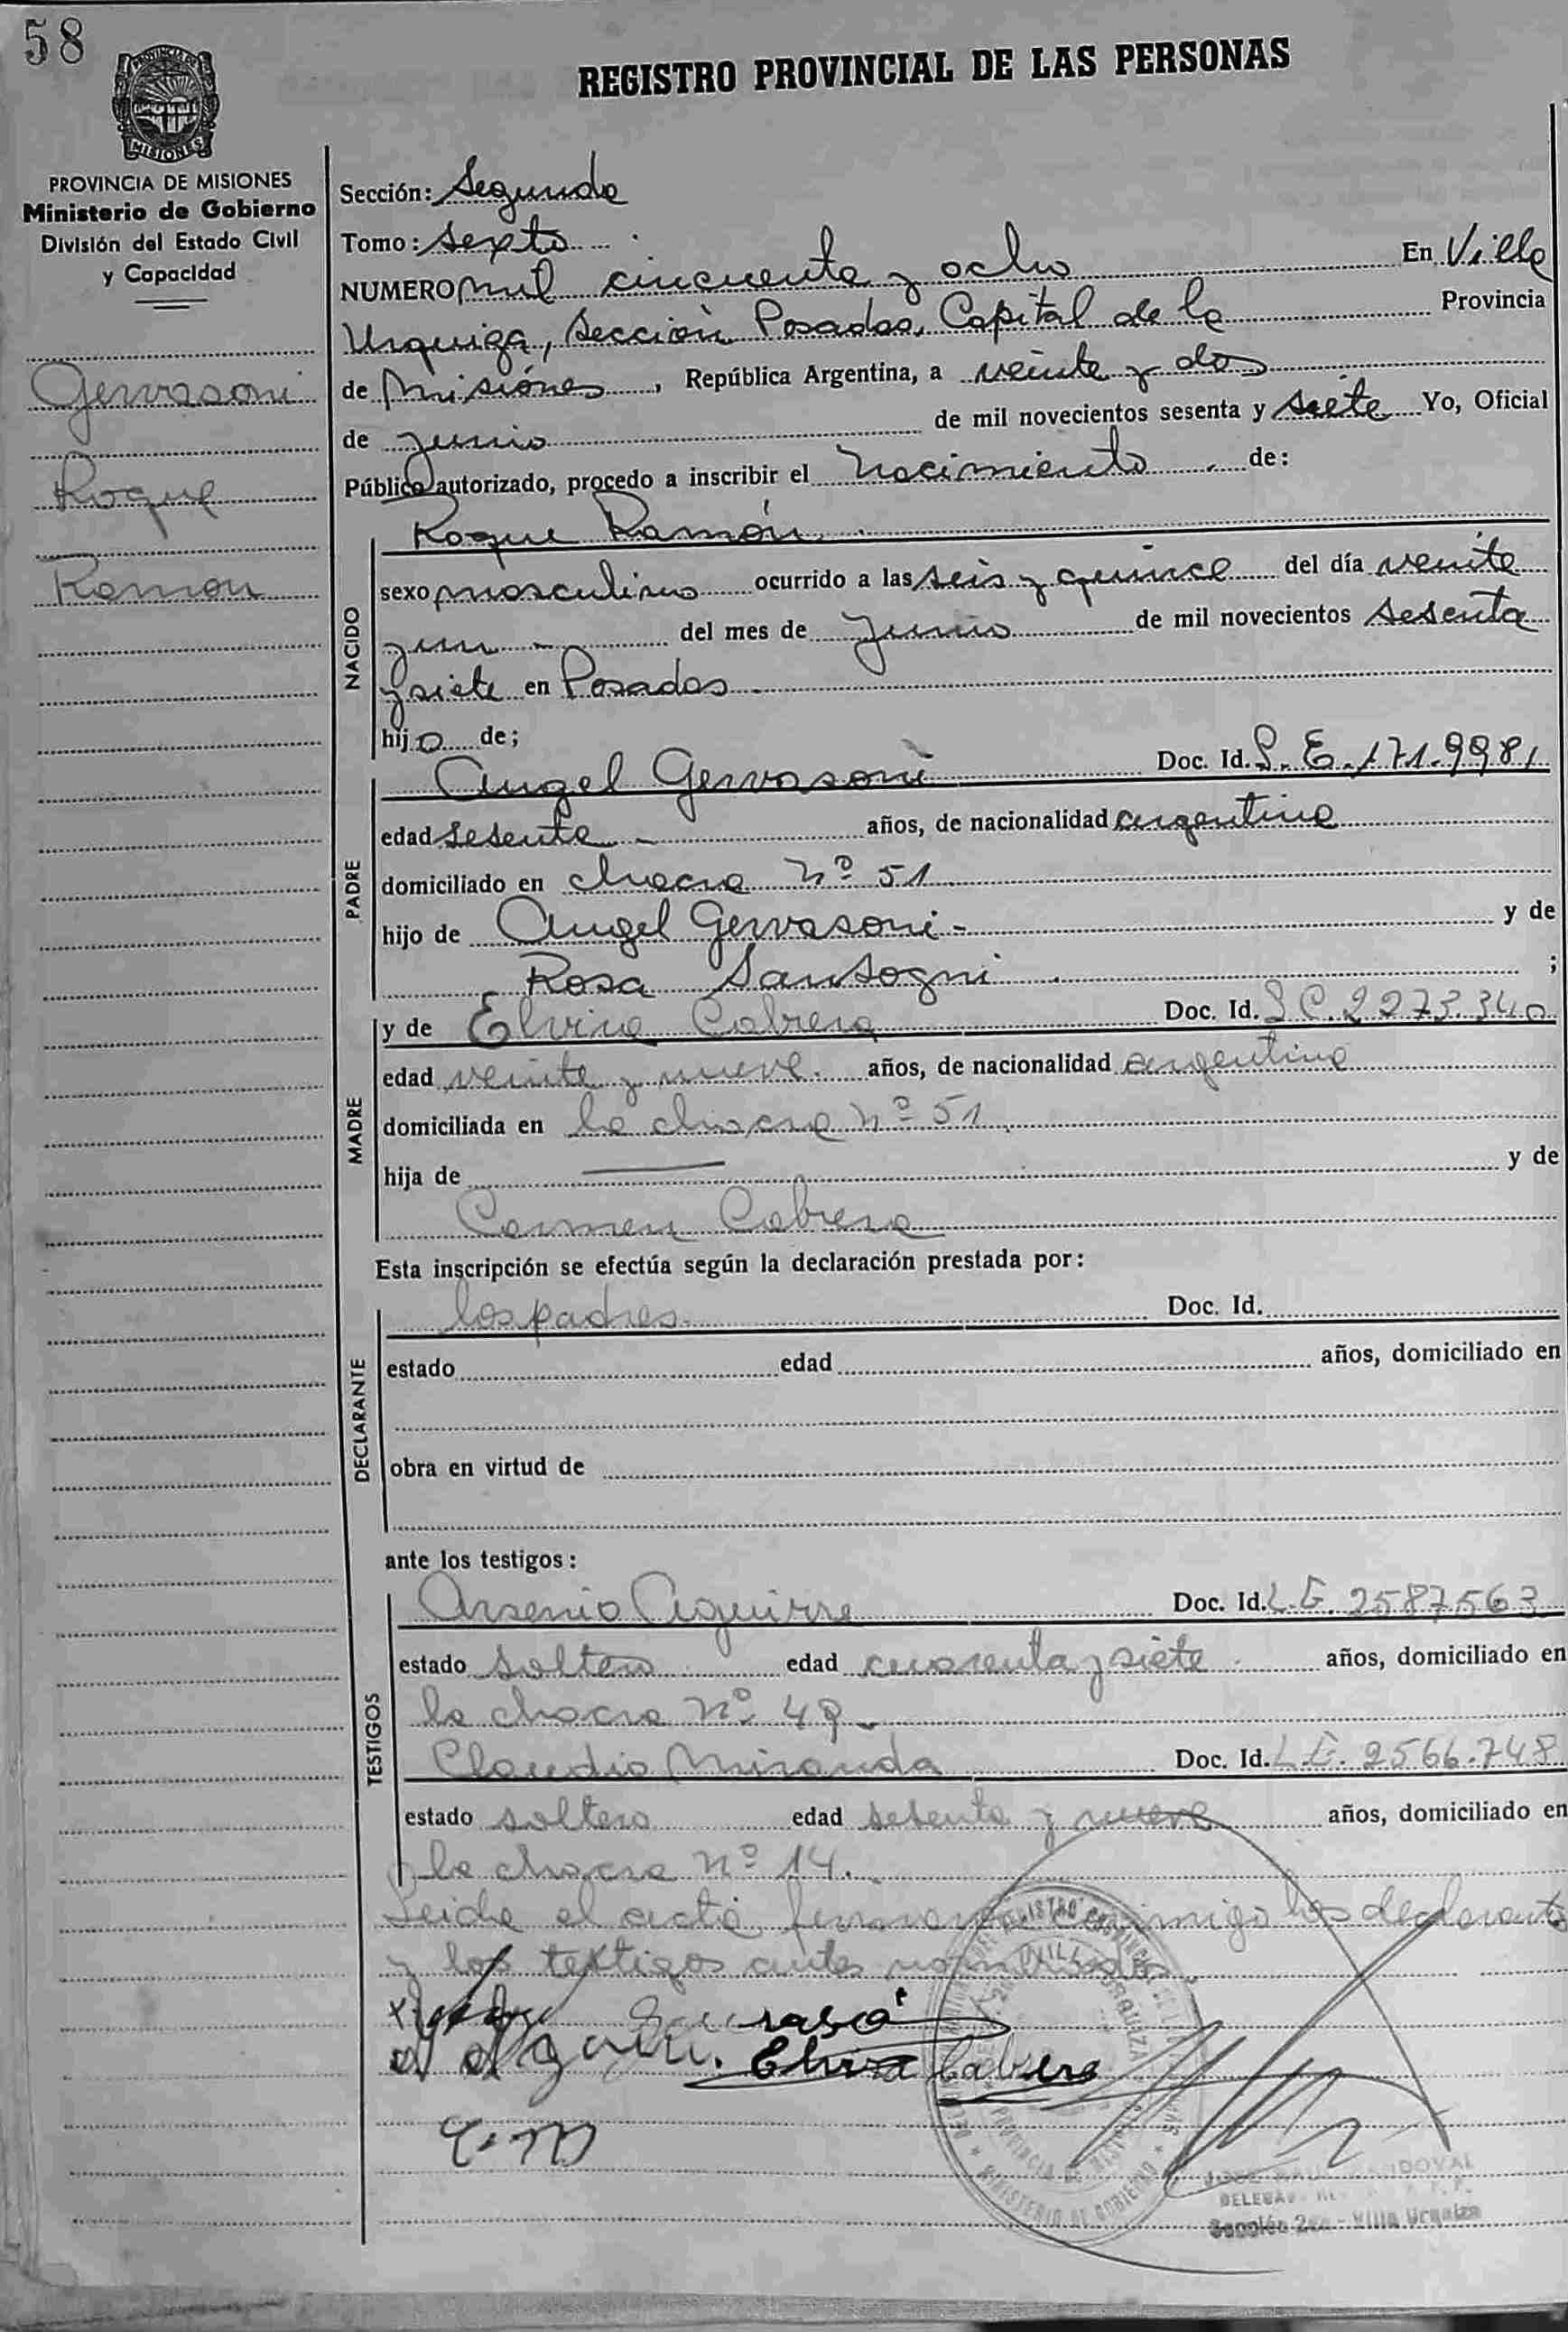 58
REGISTRO PROVINCIAL DE LAS PERSONAS
PROVINCIA DE
MISIONES
PROVINCIA DE MISIONES
Ministerio de Gobierno
División del Estado Civil
y Capacidad
Gervasoni
Roque
Ramon
Sección: Segunda
Tomo: sexto
NUMERO mil cincuenta y ocho En Villa
Urquiza, Sección Posadas, Capital de la Provincia
de Misiones, República Argentina, a veinte y dos
de junio de mil novecientos sesenta y siete Yo, Oficial
Público autorizado, procedo a inscribir el nacimiento de:
Roque Ramón
NACIDO
sexo masculino ocurrido a las seis y quince del día veinte
y un del mes de junio de mil novecientos sesenta
y siete en Posadas
hijo de;
PADRE
Angel Gervasoni Doc. Id. L. E. 171.9981
edad sesenta años, de nacionalidad argentina
domiciliado en chacra Nº 51
hijo de Angel Gervasoni - y de
Rosa Santogni ;
MADRE
y de Elvira Cabrera Doc. Id. L C. 2273.340
edad veinte y nueve. años, de nacionalidad argentina
domiciliada en la chacra nº 51
hija de y de
Carmen Cabrera
Esta inscripción se efectúa según la declaración prestada por:
DECLARANTE
los padres Doc. Id.
estado edad años, domiciliado en
obra en virtud de
ante los testigos:
TESTIGOS
Arsenio Aguirre Doc. Id. L.E. 2587563
estado soltero edad cuarenta y siete años, domiciliado en
la chacra nº 49
Claudio Miranda Doc. Id. L.E. 2566.748
estado soltero edad sesenta y nueve años, domiciliado en
la chacra nº 14.
Leida el acta, firman conmigo los declarantes
y los testigos antes nombrados.
Elvira Cabrera
MINISTERIO DE GOBIERNO
DELEGAD
Sección 2da - Villa Urquiza